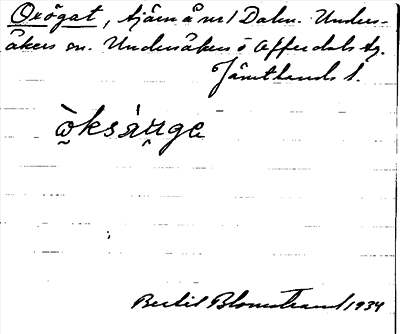 Oxögat, tjärn å nr 1 Dalen. Under-
åkers sn. Undersåkers o Offerdals tg.
Jämtlands l.
ò̯ksàu̯ge
Bertil Blomstrand 1934